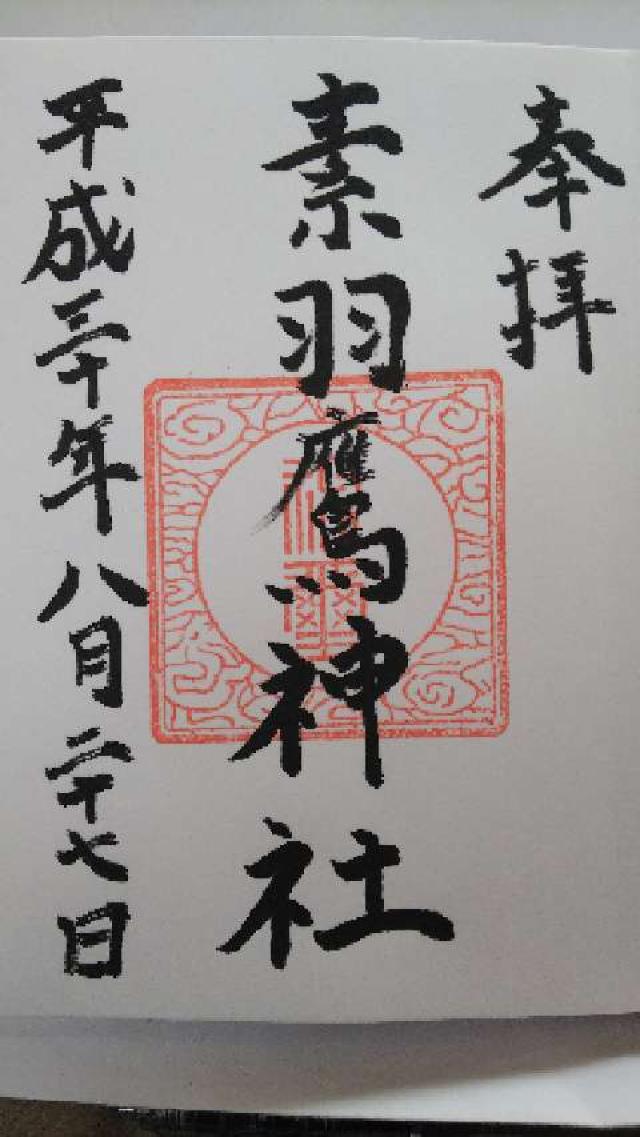 奉拝
素羽鷹神社
平成三十年八月二十七日